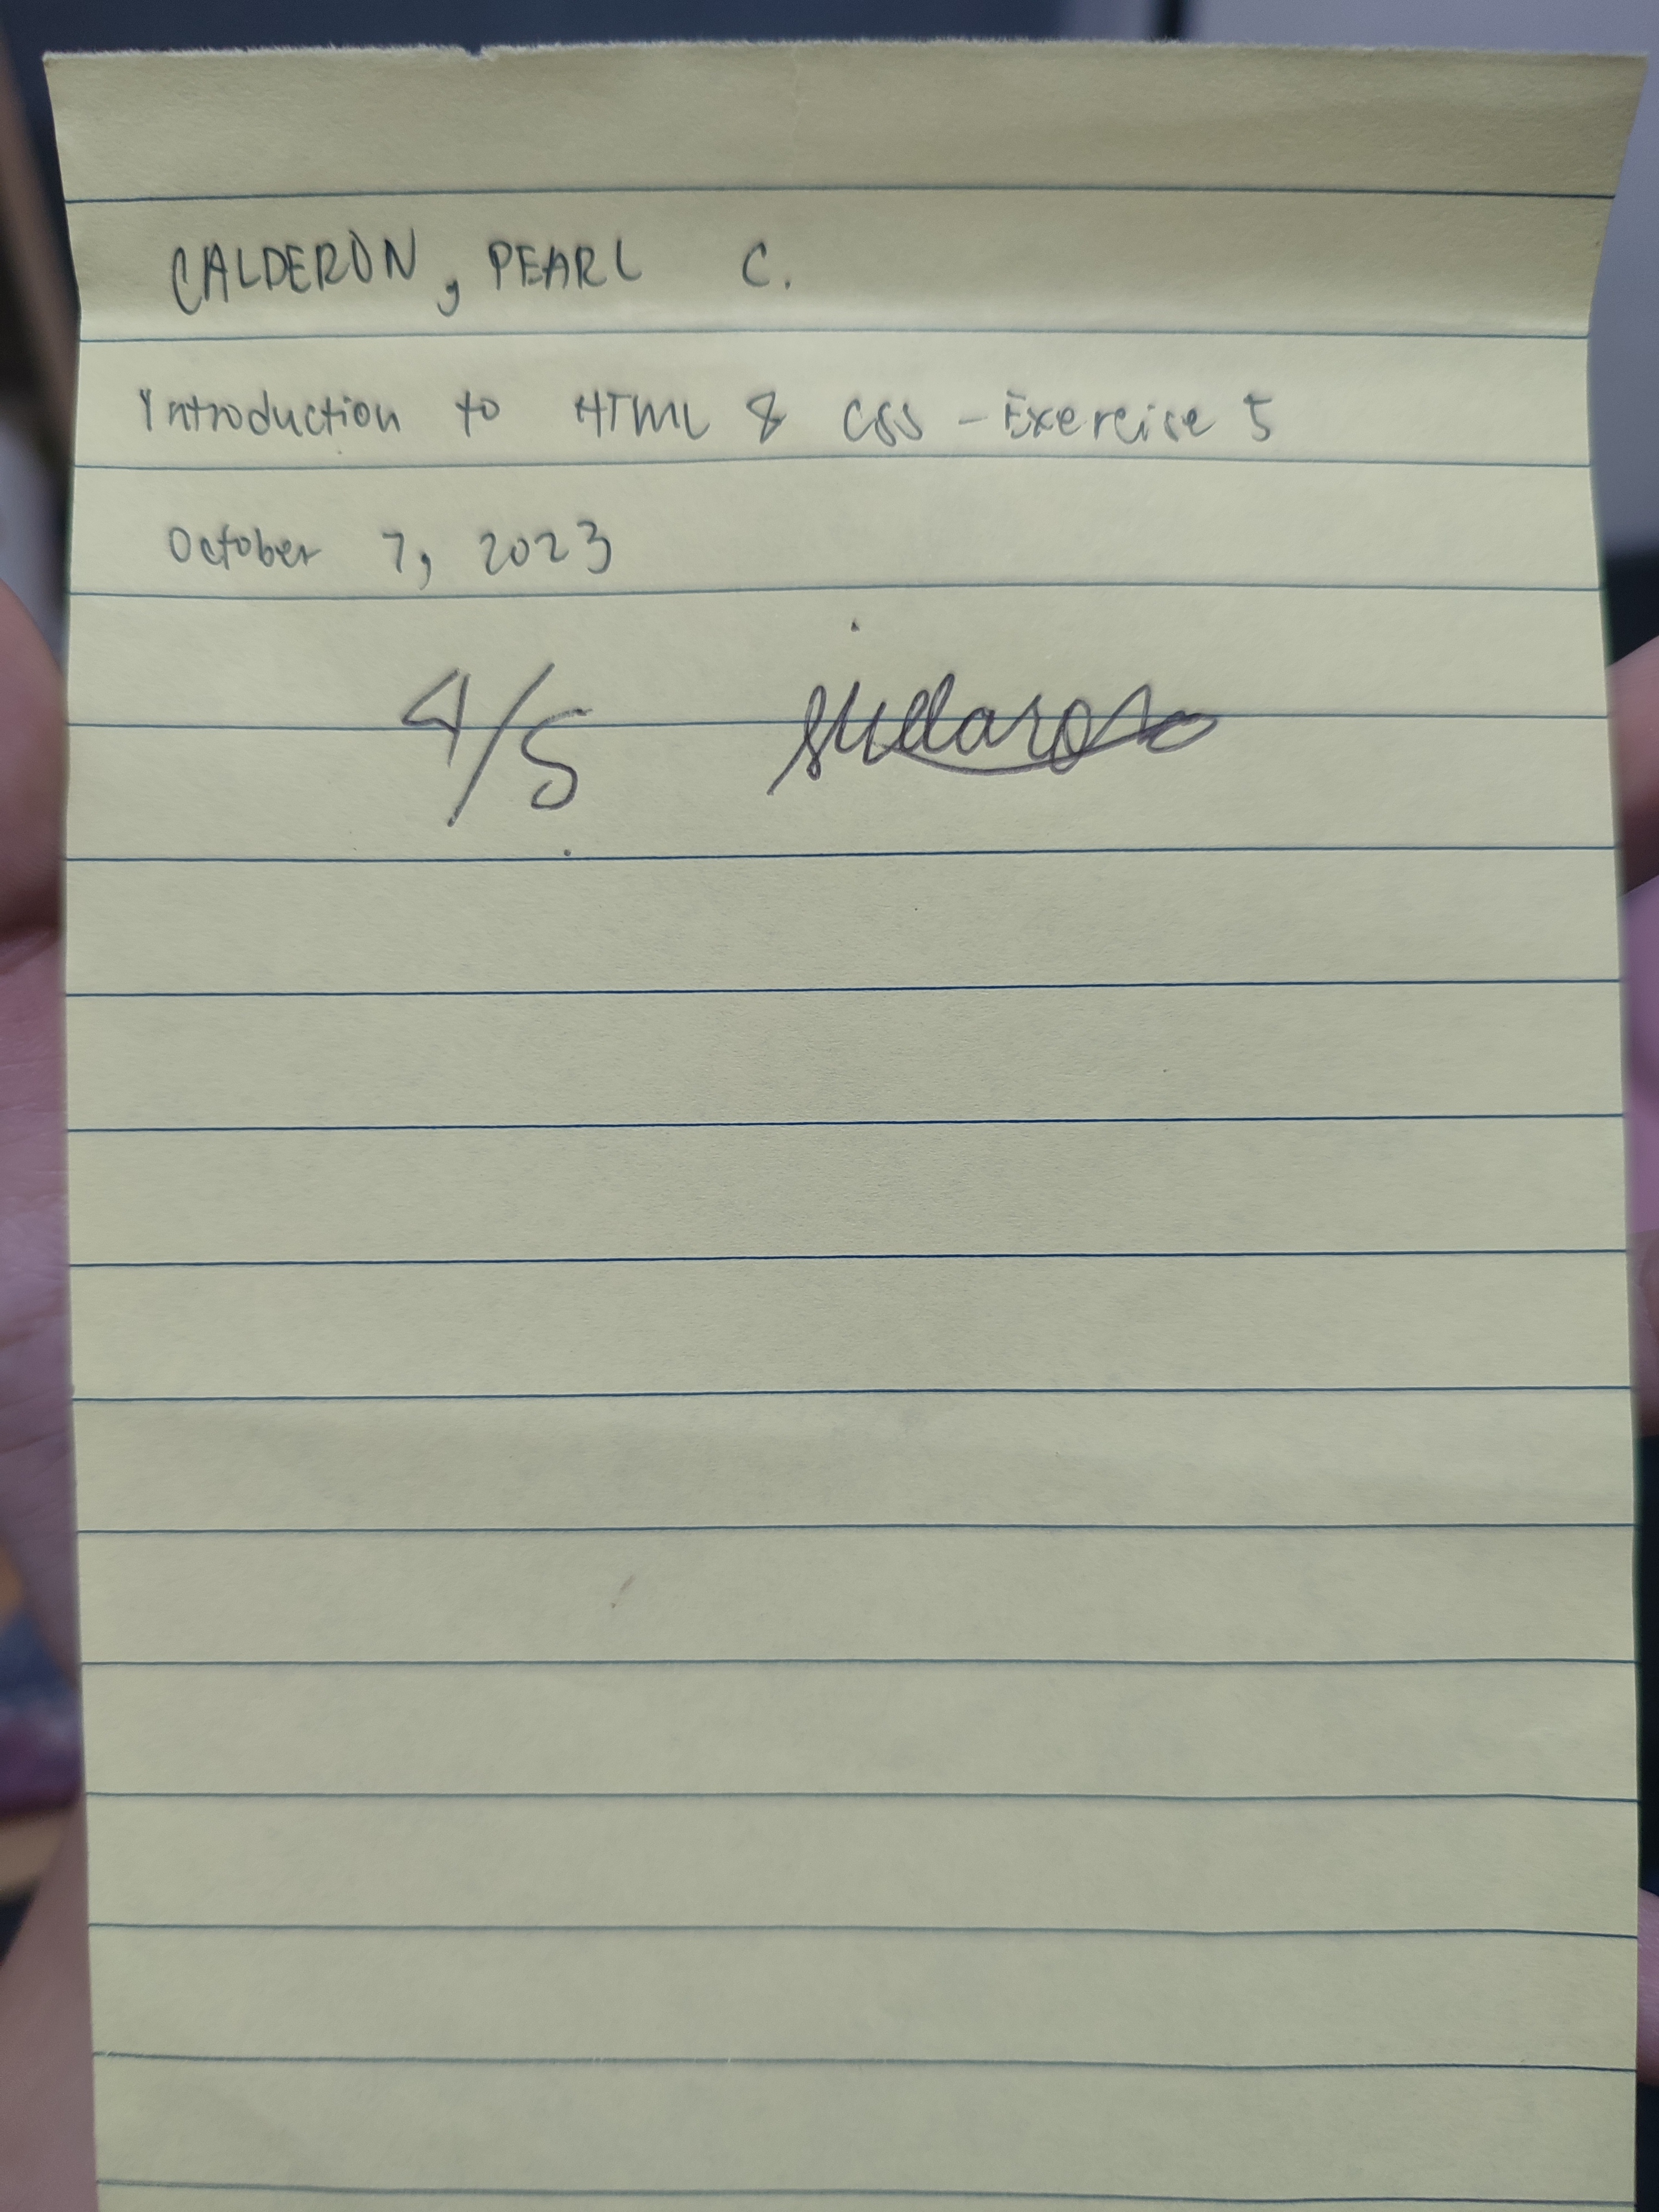 CALDERON, PEARL C.
Introduction to HTML & CSS - Exercise 5
October 7, 2023
4/5